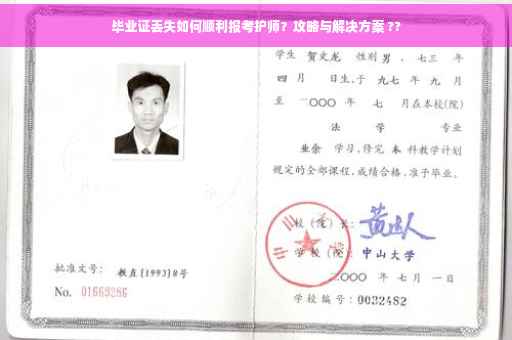 毕业证丢失如何顺利报考护师？攻略与解决方案 ??
学生 贺文龙 性别 男 ，七三 年
四 月 日生,于 九七 年 九 月
至 二○○○ 年 七 月在本校(院)
法 学 专业
业余 学习,修完 本 科教学计划
规定的全部课程,成绩合格,准予毕业。
校 (院) 长:
学 校 (院) 中山大学
二○○○ 年 七 月 一 日
批准文号: 教直[1993]8号
No. 01669286
学校编号: 0032482